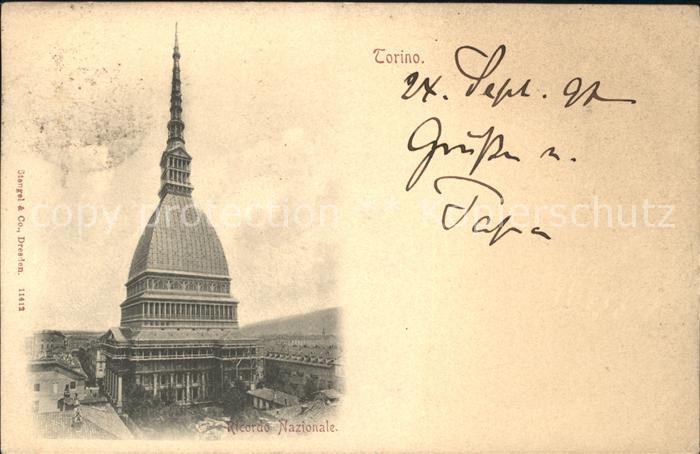 Torino.
24. Sept. 97
Grüße u.
Papa
Stengel & Co., Dresden. 11412
copy protection ** Kopierschutz
Ricordo Nazionale.